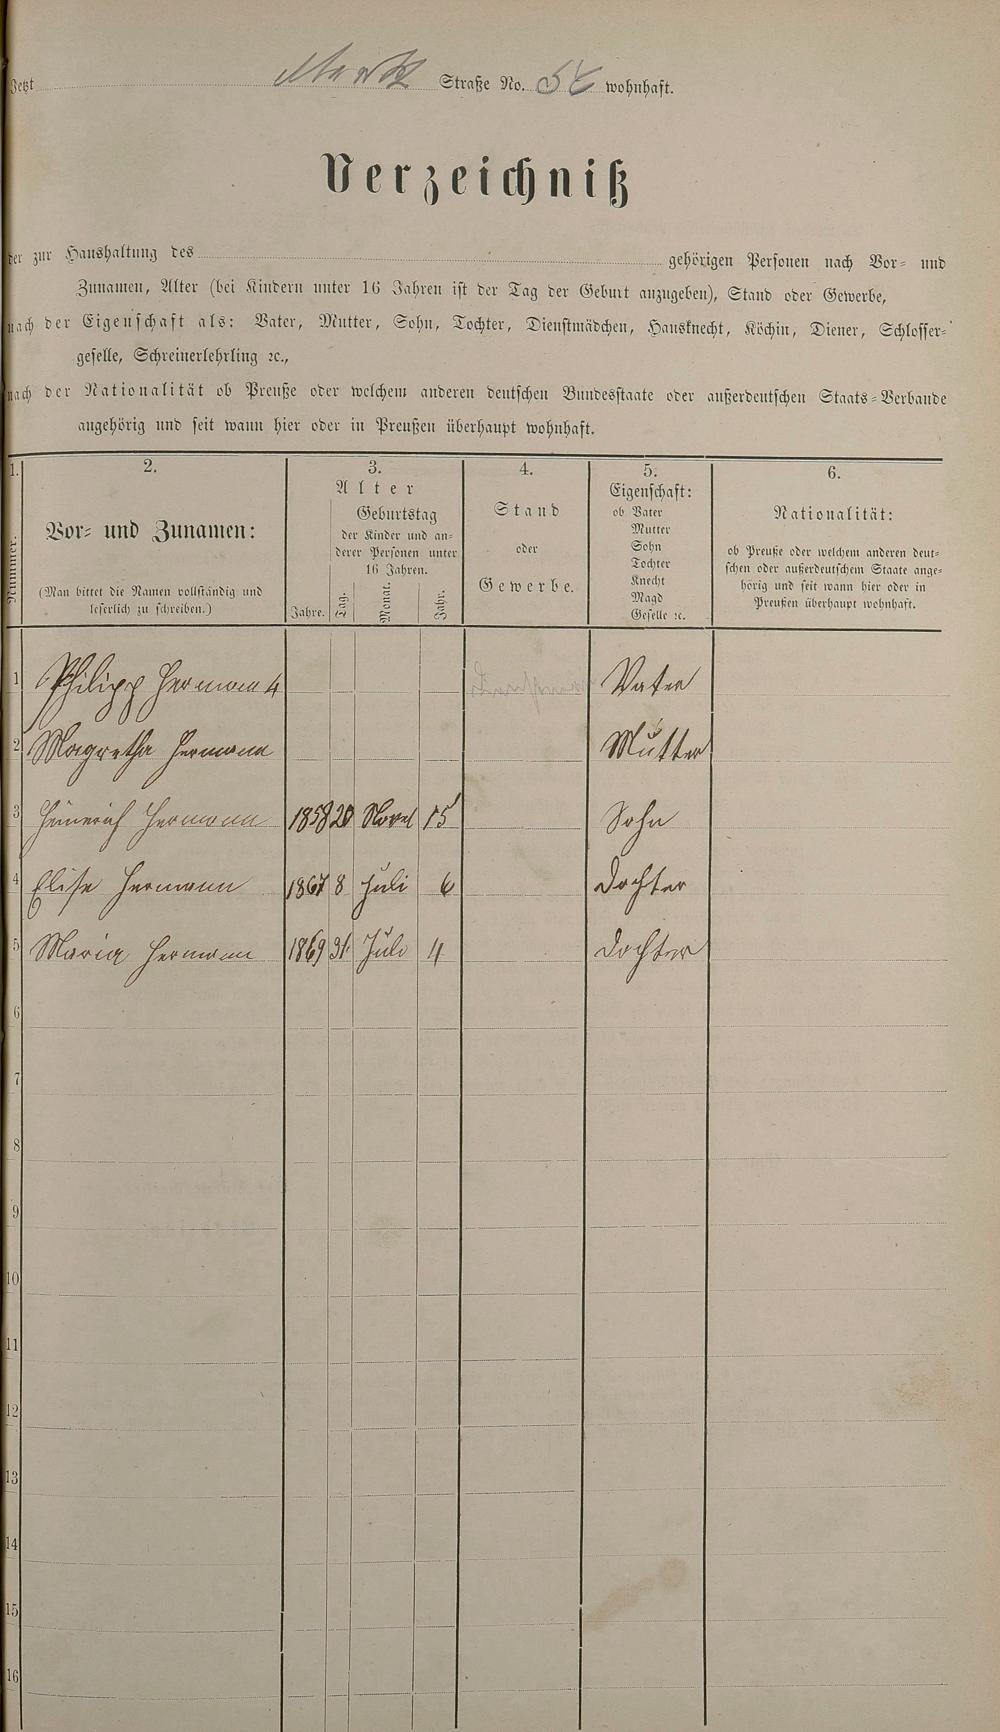 Jetzt Markt Straße No. wohnhaft.
Verzeichniß
der zur Haushaltung des gehörigen Personen nach Vor- und
Zunamen, Alter (bei Kindern unter 16 Jahren ist der Tag der Geburt anzugeben), Stand oder Gewerbe,
nach der Eigenschaft als: Vater, Mutter, Sohn, Tochter, Dienstmädchen, Hausknecht, Köchin, Diener, Schlosser-
geselle, Schreinerlehrling ꝛc.,
nach der Nationalität ob Preuße oder welchem anderen deutschen Bundesstaate oder außerdeutschen Staats-Verbande
angehörig und seit wann hier oder in Preußen überhaupt wohnhaft.
1. 2. 3. 4. 5. 6.
Nummer.
Vor- und Zunamen:
(Man bittet die Namen vollständig und
leserlich zu schreiben.)
Alter
Geburtstag
der Kinder und an-
derer Personen unter
16 Jahren.
Jahre. Tag. Monat. Jahr.
Stand
oder
Gewerbe.
Eigenschaft:
ob Vater
Mutter
Sohn
Tochter
Knecht
Magd
Geselle ꝛc.
Nationalität:
ob Preuße oder welchem anderen deut-
schen oder außerdeutschem Staate ange-
hörig und seit wann hier oder in
Preußen überhaupt wohnhaft.
1 Philipp Hermann 4 Vater
2 Magretha Hermann Mutter
3 Heinerich Hermann 1858 20 Novel 15 Sohn
4 Elise Hermann 1867 8 Juli 6 Dochter
5 Maria Hermann 1869 31 Juli 4 Dochter
6
7
8
9
10
11
12
13
14
15
16